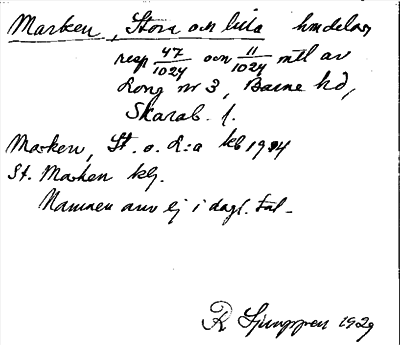 Marken, Stora och lilla hmdelar
resp 47/1024 och 11/1024 mtl av
Long nr 3, Barne hd,
Skarab. l.
Marken, St. o. L:a kb 1934
St. Marken kb.
Namnen anv ej i dagl. tal.
R Ljunggren 1929